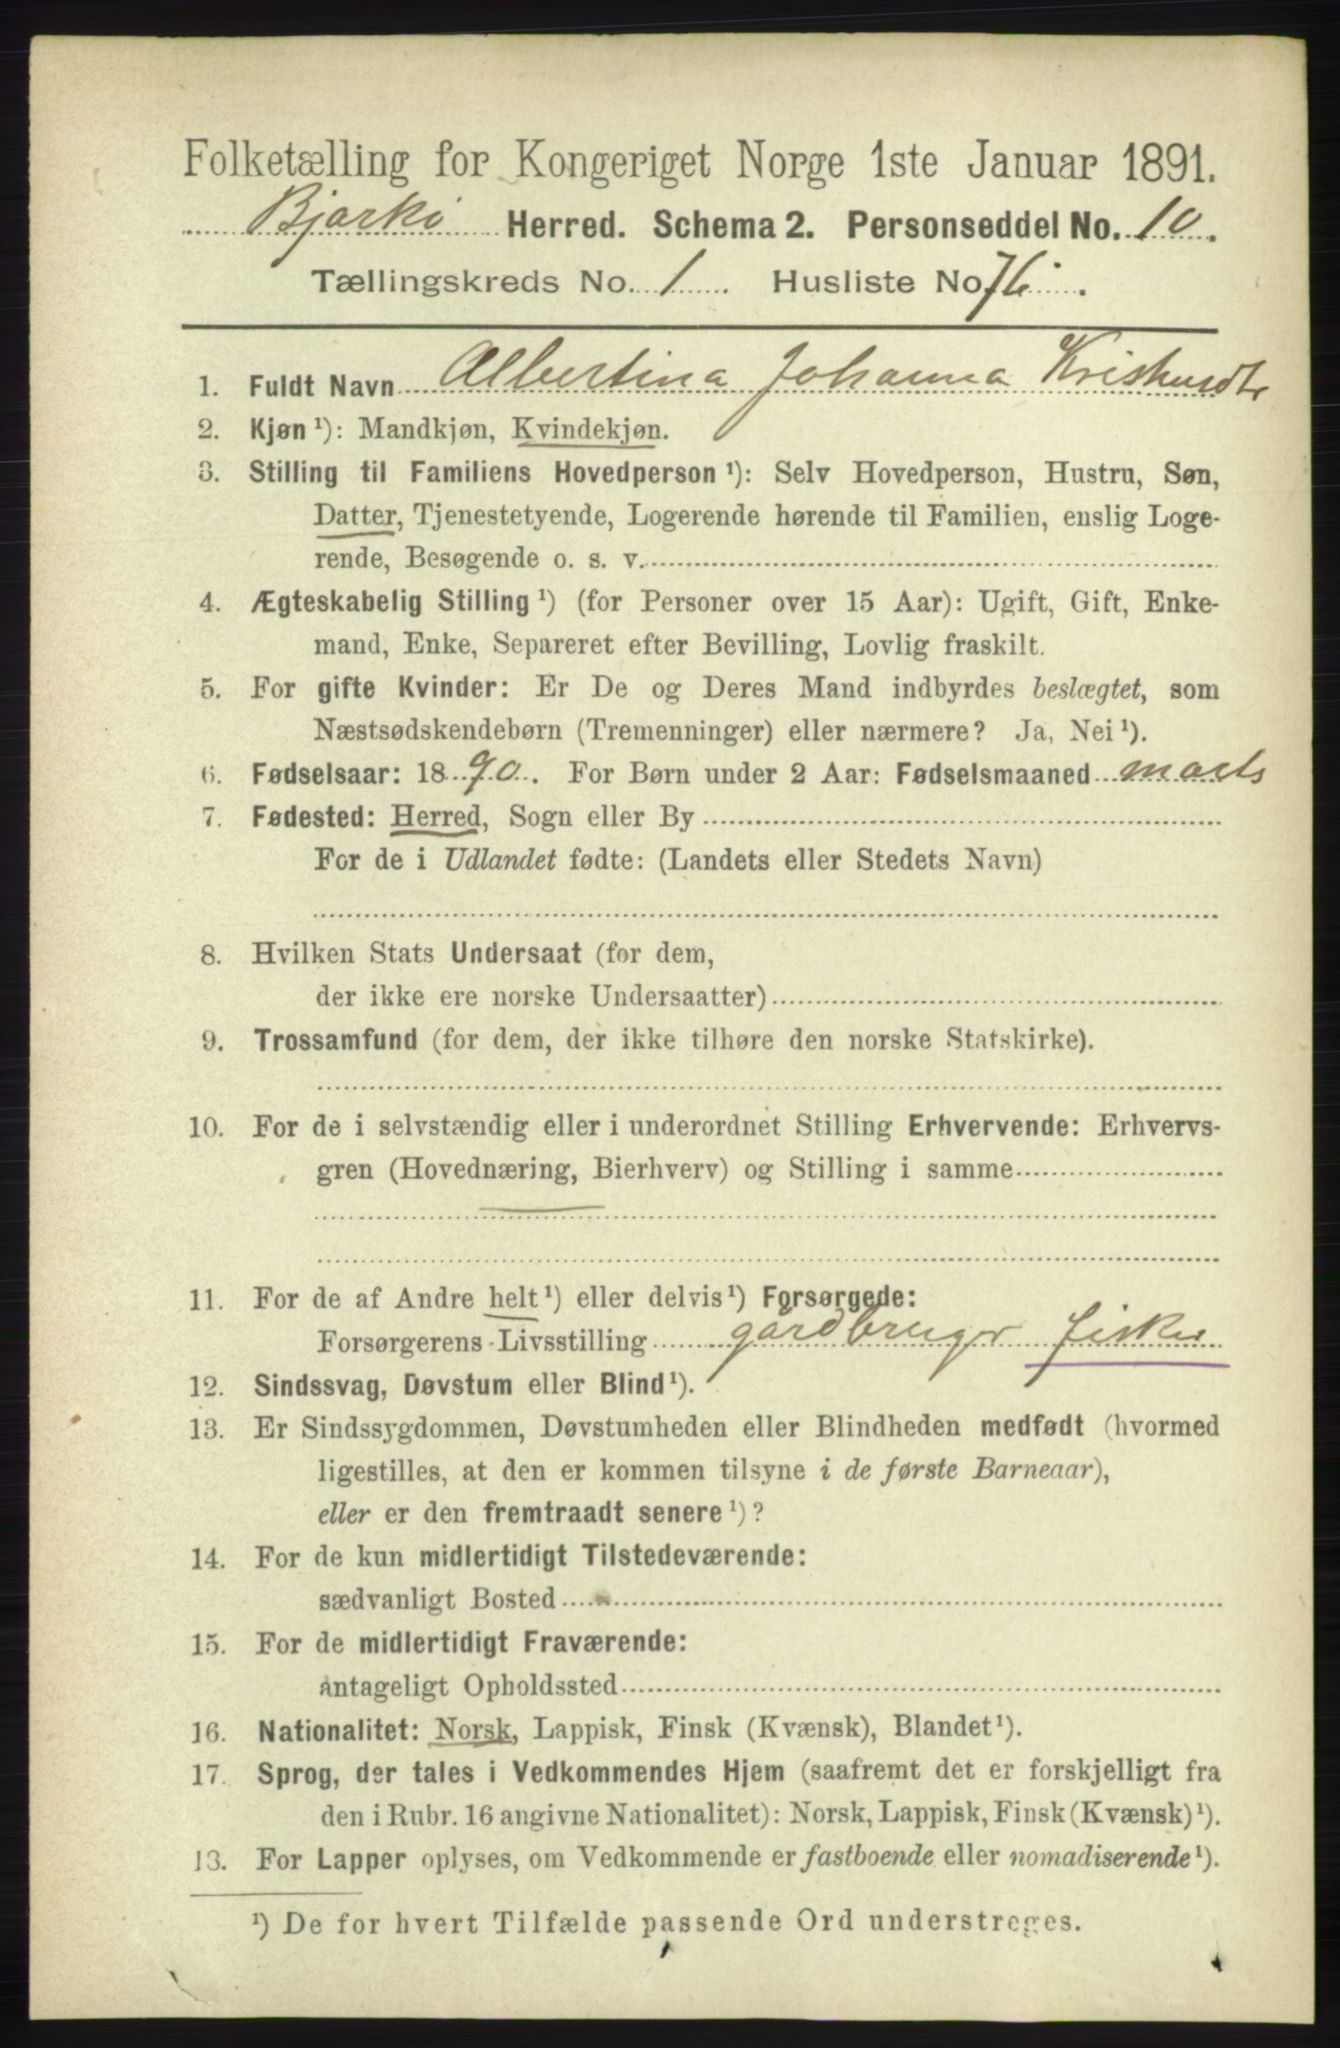 Folketælling for Kongeriget Norge 1ste Januar 1891.
Bjarkö Herred. Schema 2. Personseddel No. 10.
Tællingskreds No. 1. Husliste No. 76.
1. Fuldt Navn Albertina Johanna
2. Kjøn ¹): Mandkjøn, Kvindekjøn.
3. Stilling til Familiens Hovedperson ¹): Selv Hovedperson, Hustru, Søn,
Datter, Tjenestetyende, Logerende hørende til Familien, enslig Loge-
rende, Besøgende o. s. v.
4. Ægteskabelig Stilling ¹) (for Personer over 15 Aar): Ugift, Gift, Enke-
mand, Enke, Separeret efter Bevilling, Lovlig fraskilt.
5. For gifte Kvinder: Er De og Deres Mand indbyrdes beslægtet, som
Næstsødskendebørn (Tremenninger) eller nærmere? Ja, Nei ¹).
6. Fødselsaar: 1890. For Børn under 2 Aar: Fødselsmaaned marts
7. Fødested: Herred, Sogn eller By
For de i Udlandet fødte: (Landets eller Stedets Navn)
8. Hvilken Stats Undersaat (for dem,
der ikke ere norske Undersaatter)
9. Trossamfund (for dem, der ikke tilhøre den norske Statskirke).
10. For de i selvstændig eller i underordnet Stilling Erhvervende: Erhvervs-
gren (Hovednæring, Bierhverv) og Stilling i samme
11. For de af Andre helt ¹) eller delvis ¹) Forsørgede:
Forsørgerens Livsstilling gårdbruger fisker
12. Sindssvag, Døvstum eller Blind ¹).
13. Er Sindssygdommen, Døvstumheden eller Blindheden medfødt (hvormed
ligestilles, at den er kommen tilsyne i de første Barneaar),
eller er den fremtraadt senere ¹)?
14. For de kun midlertidigt Tilstedeværende:
sædvanligt Bosted
15. For de midlertidigt Fraværende:
antageligt Opholdssted
16. Nationalitet: Norsk, Lappisk, Finsk (Kvænsk), Blandet ¹).
17. Sprog, der tales i Vedkommendes Hjem (saafremt det er forskjelligt fra
den i Rubr. 16 angivne Nationalitet): Norsk, Lappisk, Finsk (Kvænsk) ¹).
13. For Lapper oplyses, om Vedkommende er fastboende eller nomadiserende ¹).
¹) De for hvert Tilfælde passende Ord understreges.